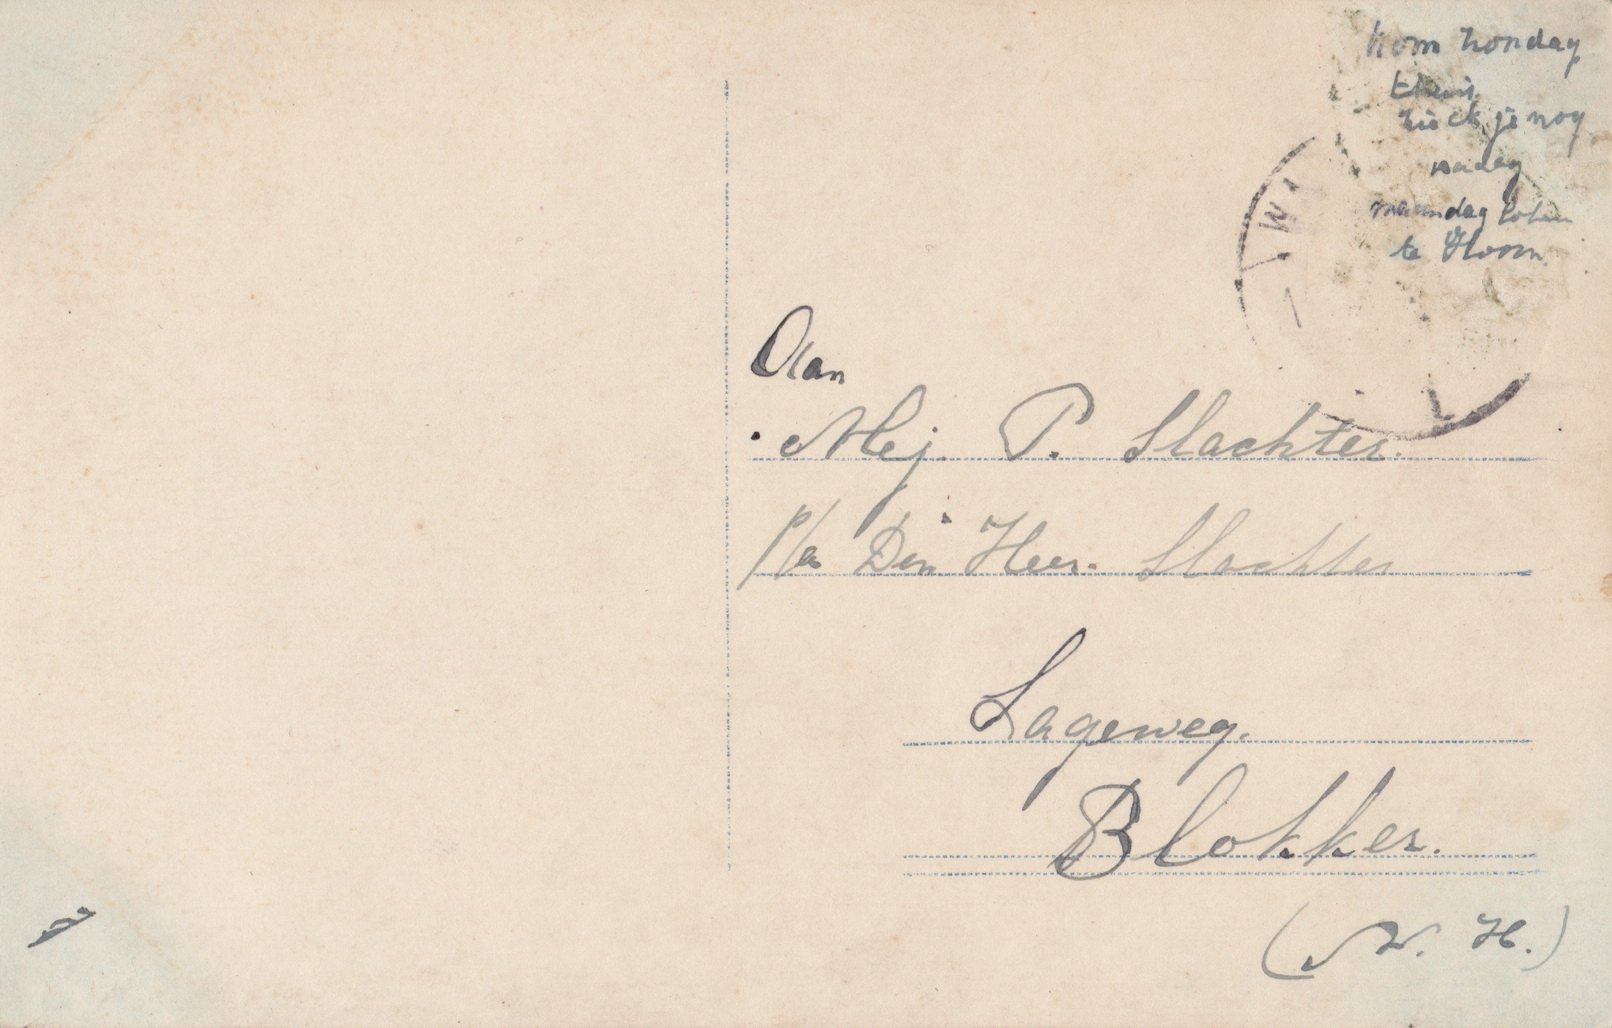 kom zondag
thuis
zie ik je nog
maandag loten
te Hoorn
Aan
Mej. P. Slachter.
p/a Den Heer. Slachter
Lageweg.
Blokker.
(N. H.)